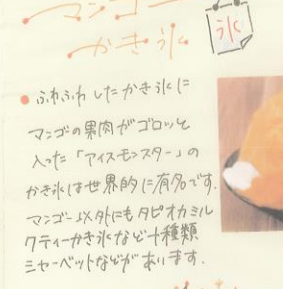 マンゴー
かき氷
氷
ふわふわしたかき氷に
マンゴの果肉がゴロッと
入った「アイスモンスター」の
かき氷は世界的に有名です.
マンゴー以外にもタピオカミル
クティーかき氷など十種類
シャーベットなどがあります.